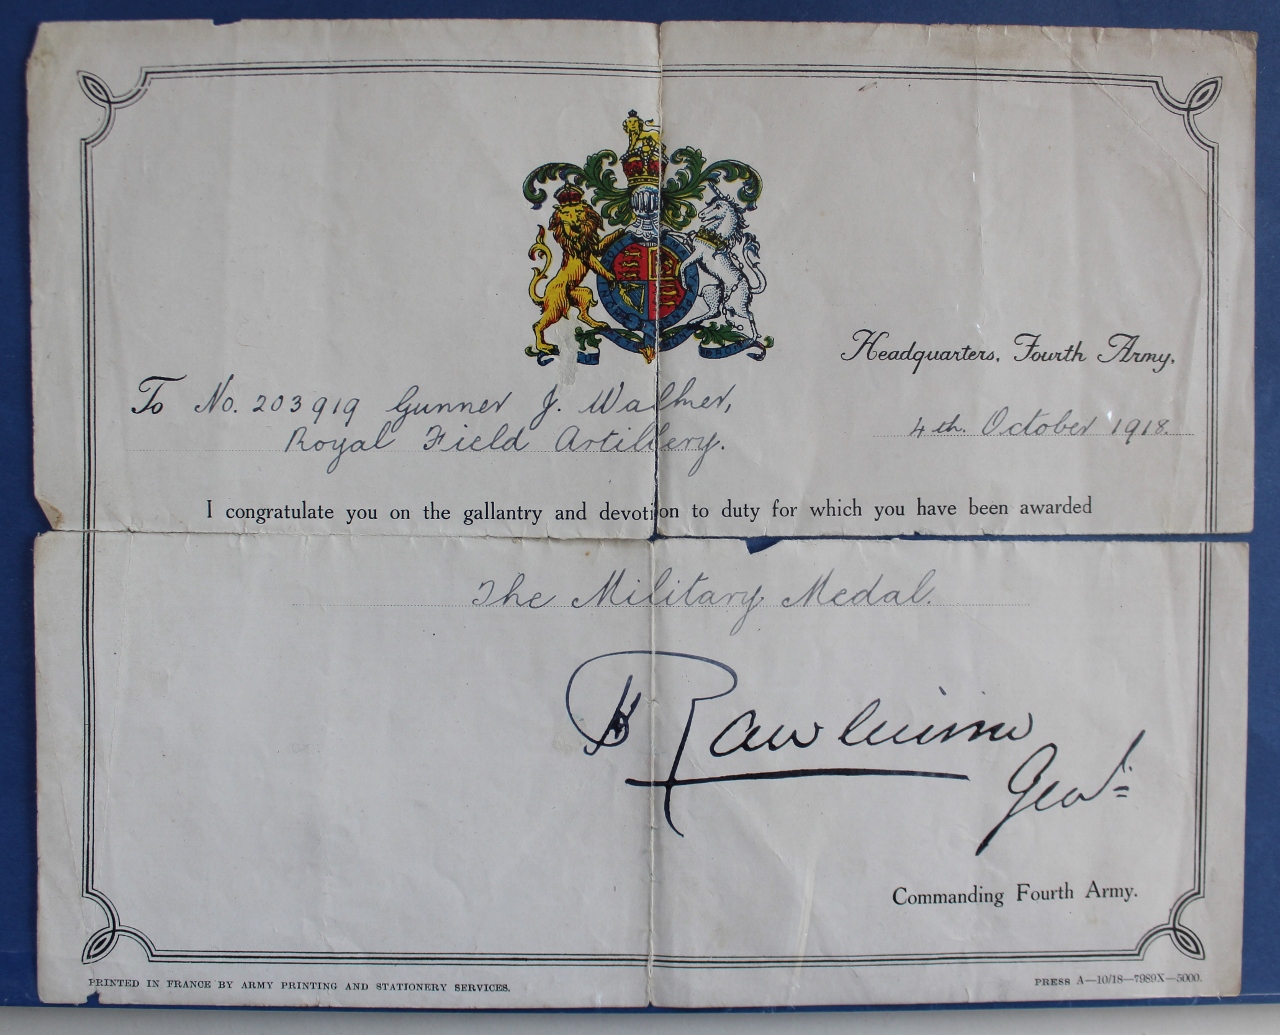 Headquarters, Fourth Army,
To No. 203919 Gunner J. Walker,
4th. October 1918.
Royal Field Artillery.
I congratulate you on the gallantry and devotion to duty for which you have been awarded
The Military Medal.
Rawlinson
Genl
Commanding Fourth Army.
PRINTED IN FRANCE BY ARMY PRINTING AND STATIONERY SERVICES.
PRESS A—10/18—7989X—5000.